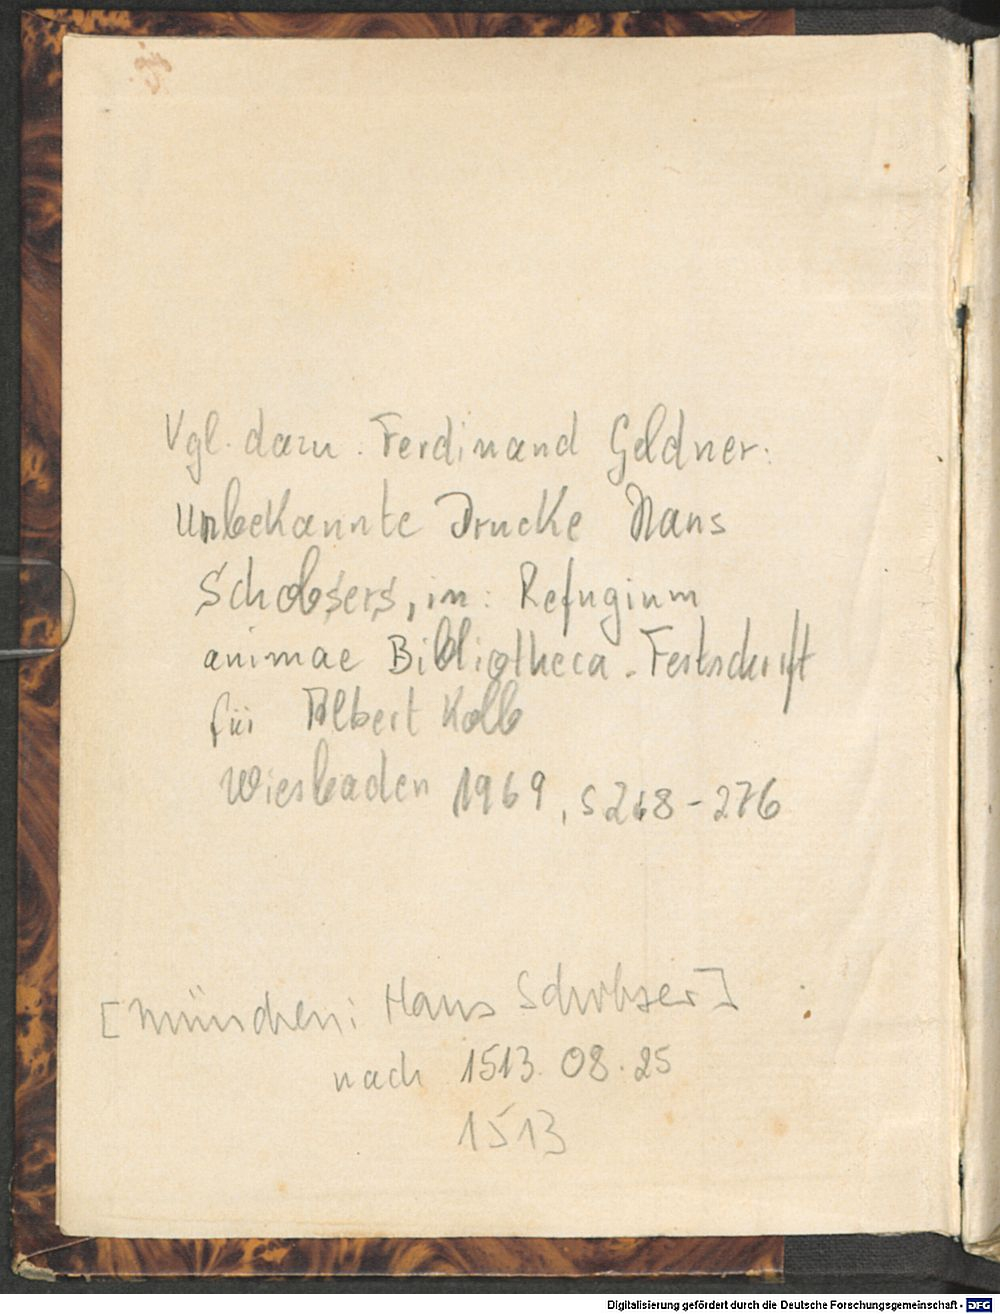 Vgl. dazu: Ferdinand Geldner:
Unbekannte Drucke Hans
Schobsers, in: Refugium
animae Bibliotheca. Festschrift
für Albert Kolb
Wiesbaden 1969, S 268-276
[München: Hans Schobser]
nach 1513.08.25
1513
Digitalisierung gefördert durch die Deutsche Forschungsgemeinschaft - DFG